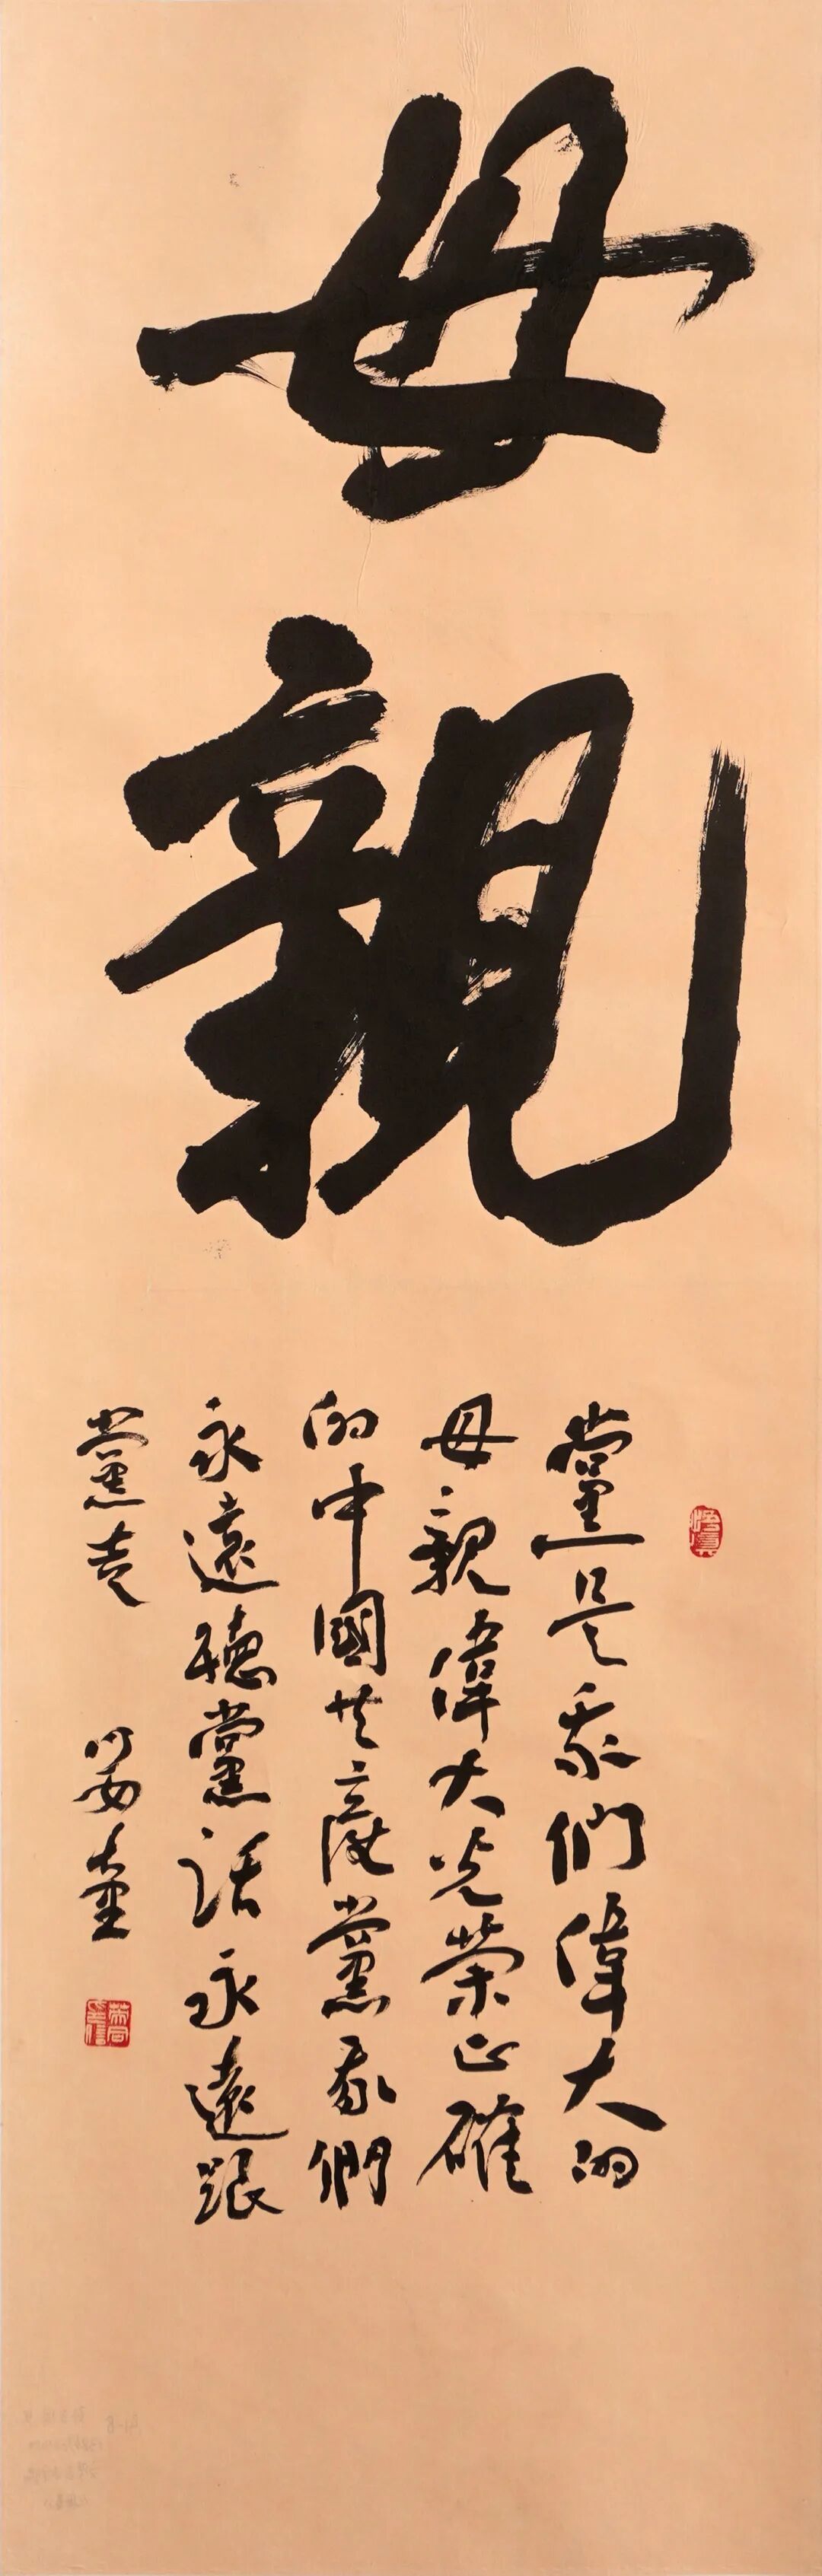 母親
黨是我們偉大的
母親偉大光榮正確
的中國共產黨我們
永遠聽黨話永遠跟
黨走